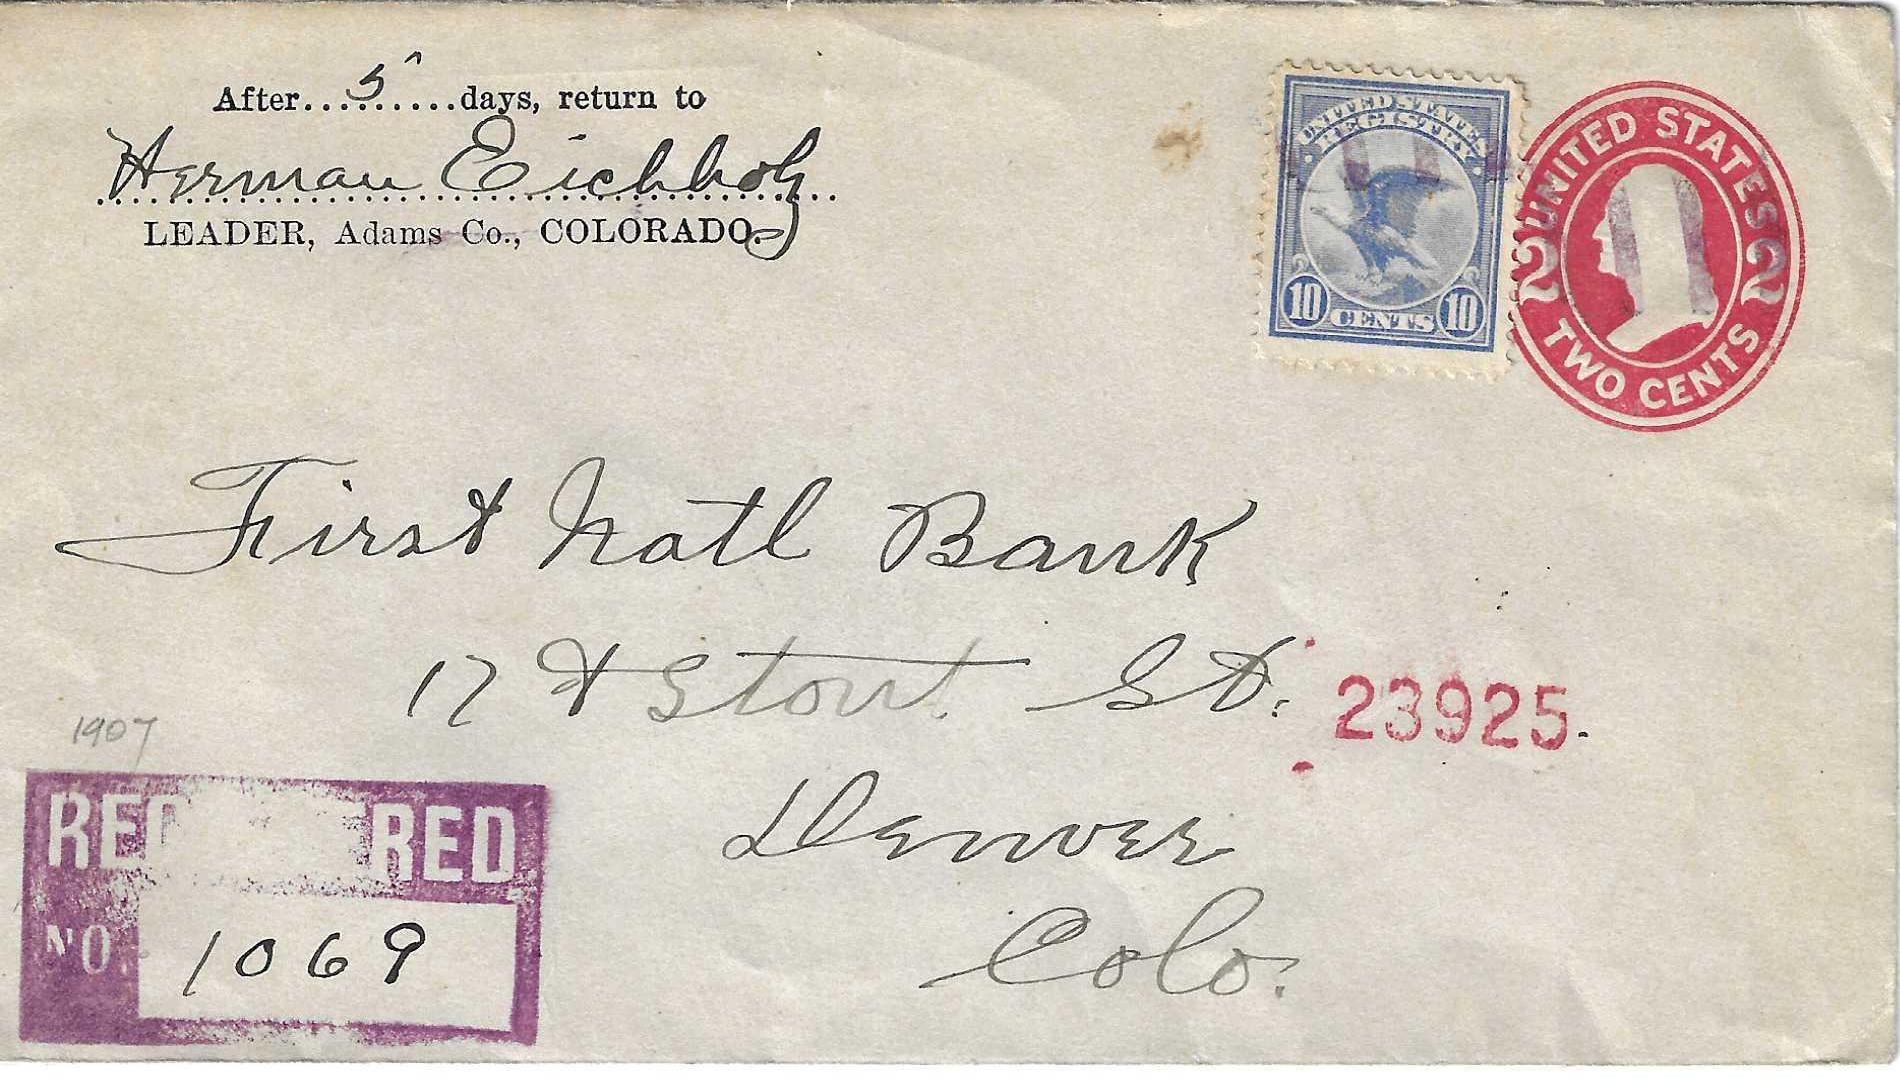 After....5.....days, return to
Herman Eichholz
LEADER, Adams Co., COLORADO.
UNITED STATES
REGISTRY
10 CENTS 10
UNITED STATES
2 2
TWO CENTS
First Natl Bank
17 & Stout St.
23925.
Denver
Colo.
1907
REG RED
NO. 1069